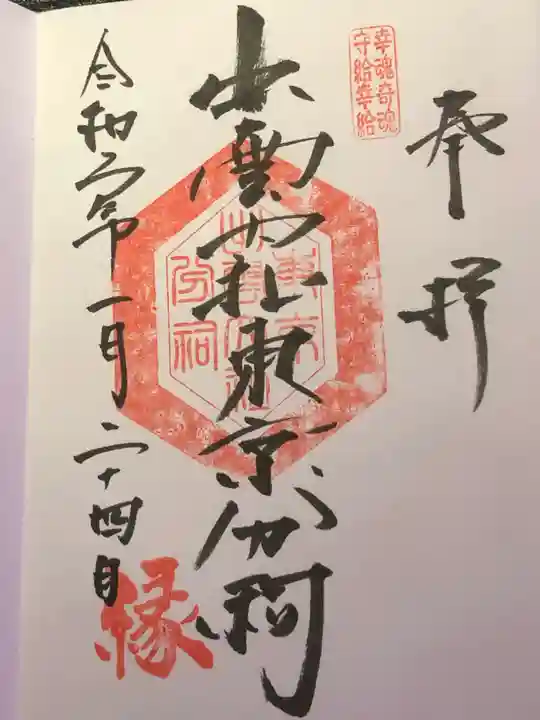 奉拝
幸魂奇魂
守給幸給
出雲大社東京分祠
東京
出雲大社
分祠
令和六年一月二十四日
縁